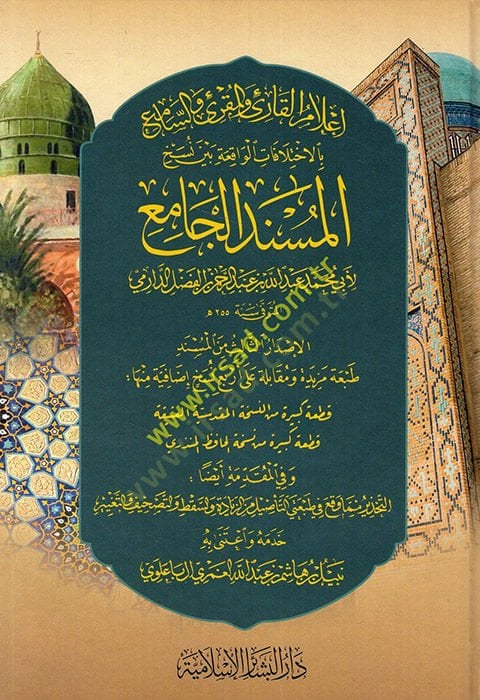 إعلام القارئ والمقرئ والسامع
بالاختلافات الواقعة بين نسخ
المسند الجامع
لأبي محمد عبد الله بن عبد الرحمن بن الفضل الدارمي
المتوفى سنة ٢٥٥ هـ
الإصدار الثالث من المسند
طبعة مزيدة ومقابلة على أربع نسخ إضافية منها:
قطعة كبيرة من النسخة المقدسية العتيقة
قطعة كبيرة من نسخة الحافظ المنذري
وفي المقدمة أيضًا:
التحذير مما وقع في طبعتي التأصيل من الزيادة والسقط والتصحيف والتغيير
خدمه واعتنى به
نبيل بن هاشم بن عبد الله الغمري آل باعلوي
دار البشائر الإسلامية
www.irsad.com.tr